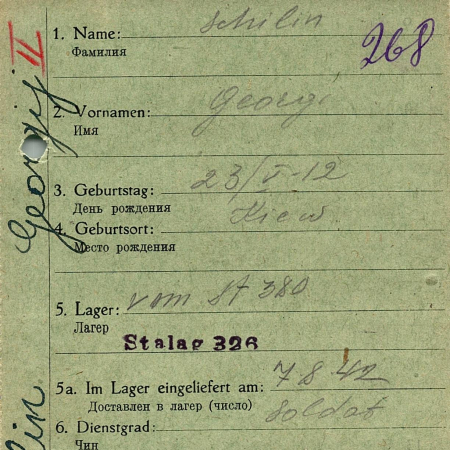 1. Name: Schilin
Фамилия
268
II
Georgij
2. Vornamen: Georgi
Имя
3. Geburtstag: 23/V-12
День рождения
4. Geburtsort: Kiew
Место рождения
5. Lager: vom St 380
Лагер
Stalag 326
5a. Im Lager eingeliefert am: 7 8 42
Доставлен в лагер (число)
6. Dienstgrad: Soldat
Чин